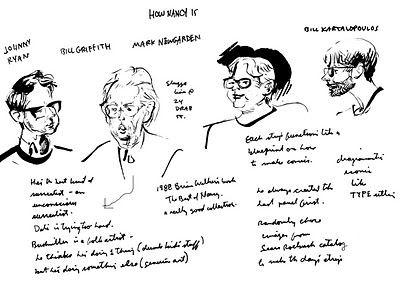 HOW NANCY IS
JOHNNY
RYAN
BILL GRIFFITH
MARK NEWGARDEN
BILL KARTALOPOULOS
Sluggo
lives @
24
DRAB
ST.
He's the best kind of
surrealist - an
unconscious
surrealist.
Dali is trying too hard.
Bushmiller is a folk artist -
he thinks he's doing 1 thing (dumb kids stuff)
but he's doing something else (genius art)
1988 Brian Walker's book
The Best of Nancy.
a really good collection.
Each strip functions like a
blueprint on how
to make comics.
he always created the
last panel first.
Randomly chose
images from
Sears Roebuck catalog
to make the day's strip
diagrammatic
iconic
like
TYPE setting